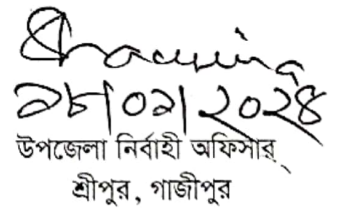 ১৮/০১/২০২৪
উপজেলা নির্বাহী অফিসার
শ্রীপুর, গাজীপুর